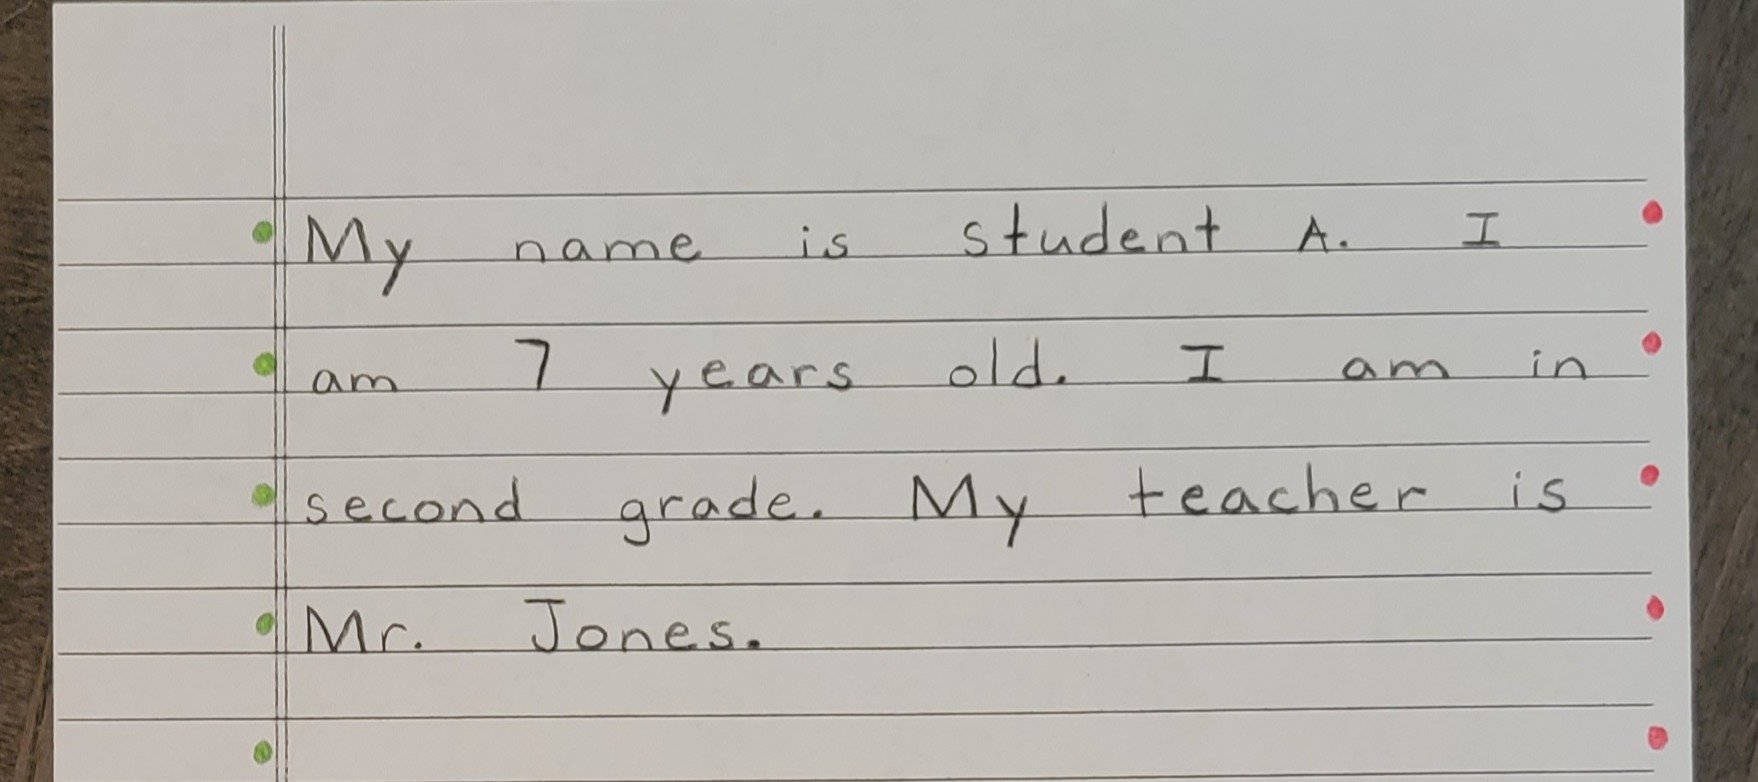 My name is student A. I
am 7 years old. I am in
second grade. My teacher is
Mr. Jones.